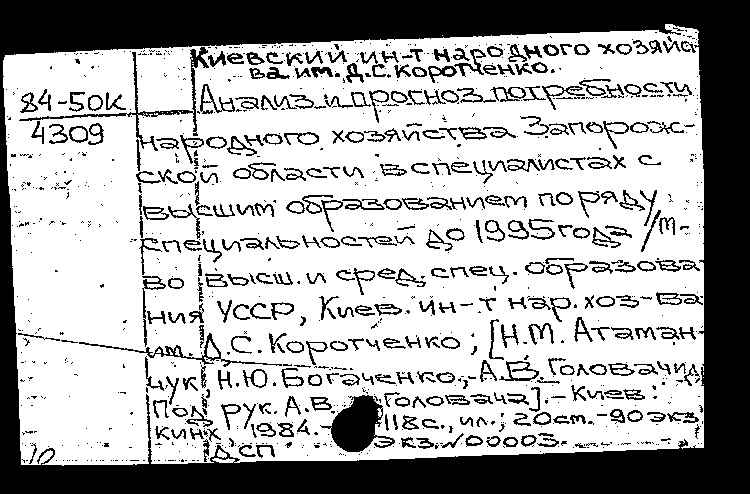 Киевский ин-т народного хозяйс
ва им. Д.С. Коротченко.
84-50К
4309
Анализ и прогноз потребности
народного хозяйства Запорож-
ской области в специалистах с
высшим образованием по ряду
специальностей до 1995 года /М-
во высш. и сред. спец. образова
ния УССР, Киев. ин-т нар. хоз-ва
им. Д.С. Коротченко; [Н.М. Атаман-
чук Н.Ю. Богаченко, А.В. Головач и др
Под рук. А.В. Головача]. - Киев:
КИНХ, 1984. - 118с., ил.; 20см. - 90экз
Экз. №00003.
ДСП
10